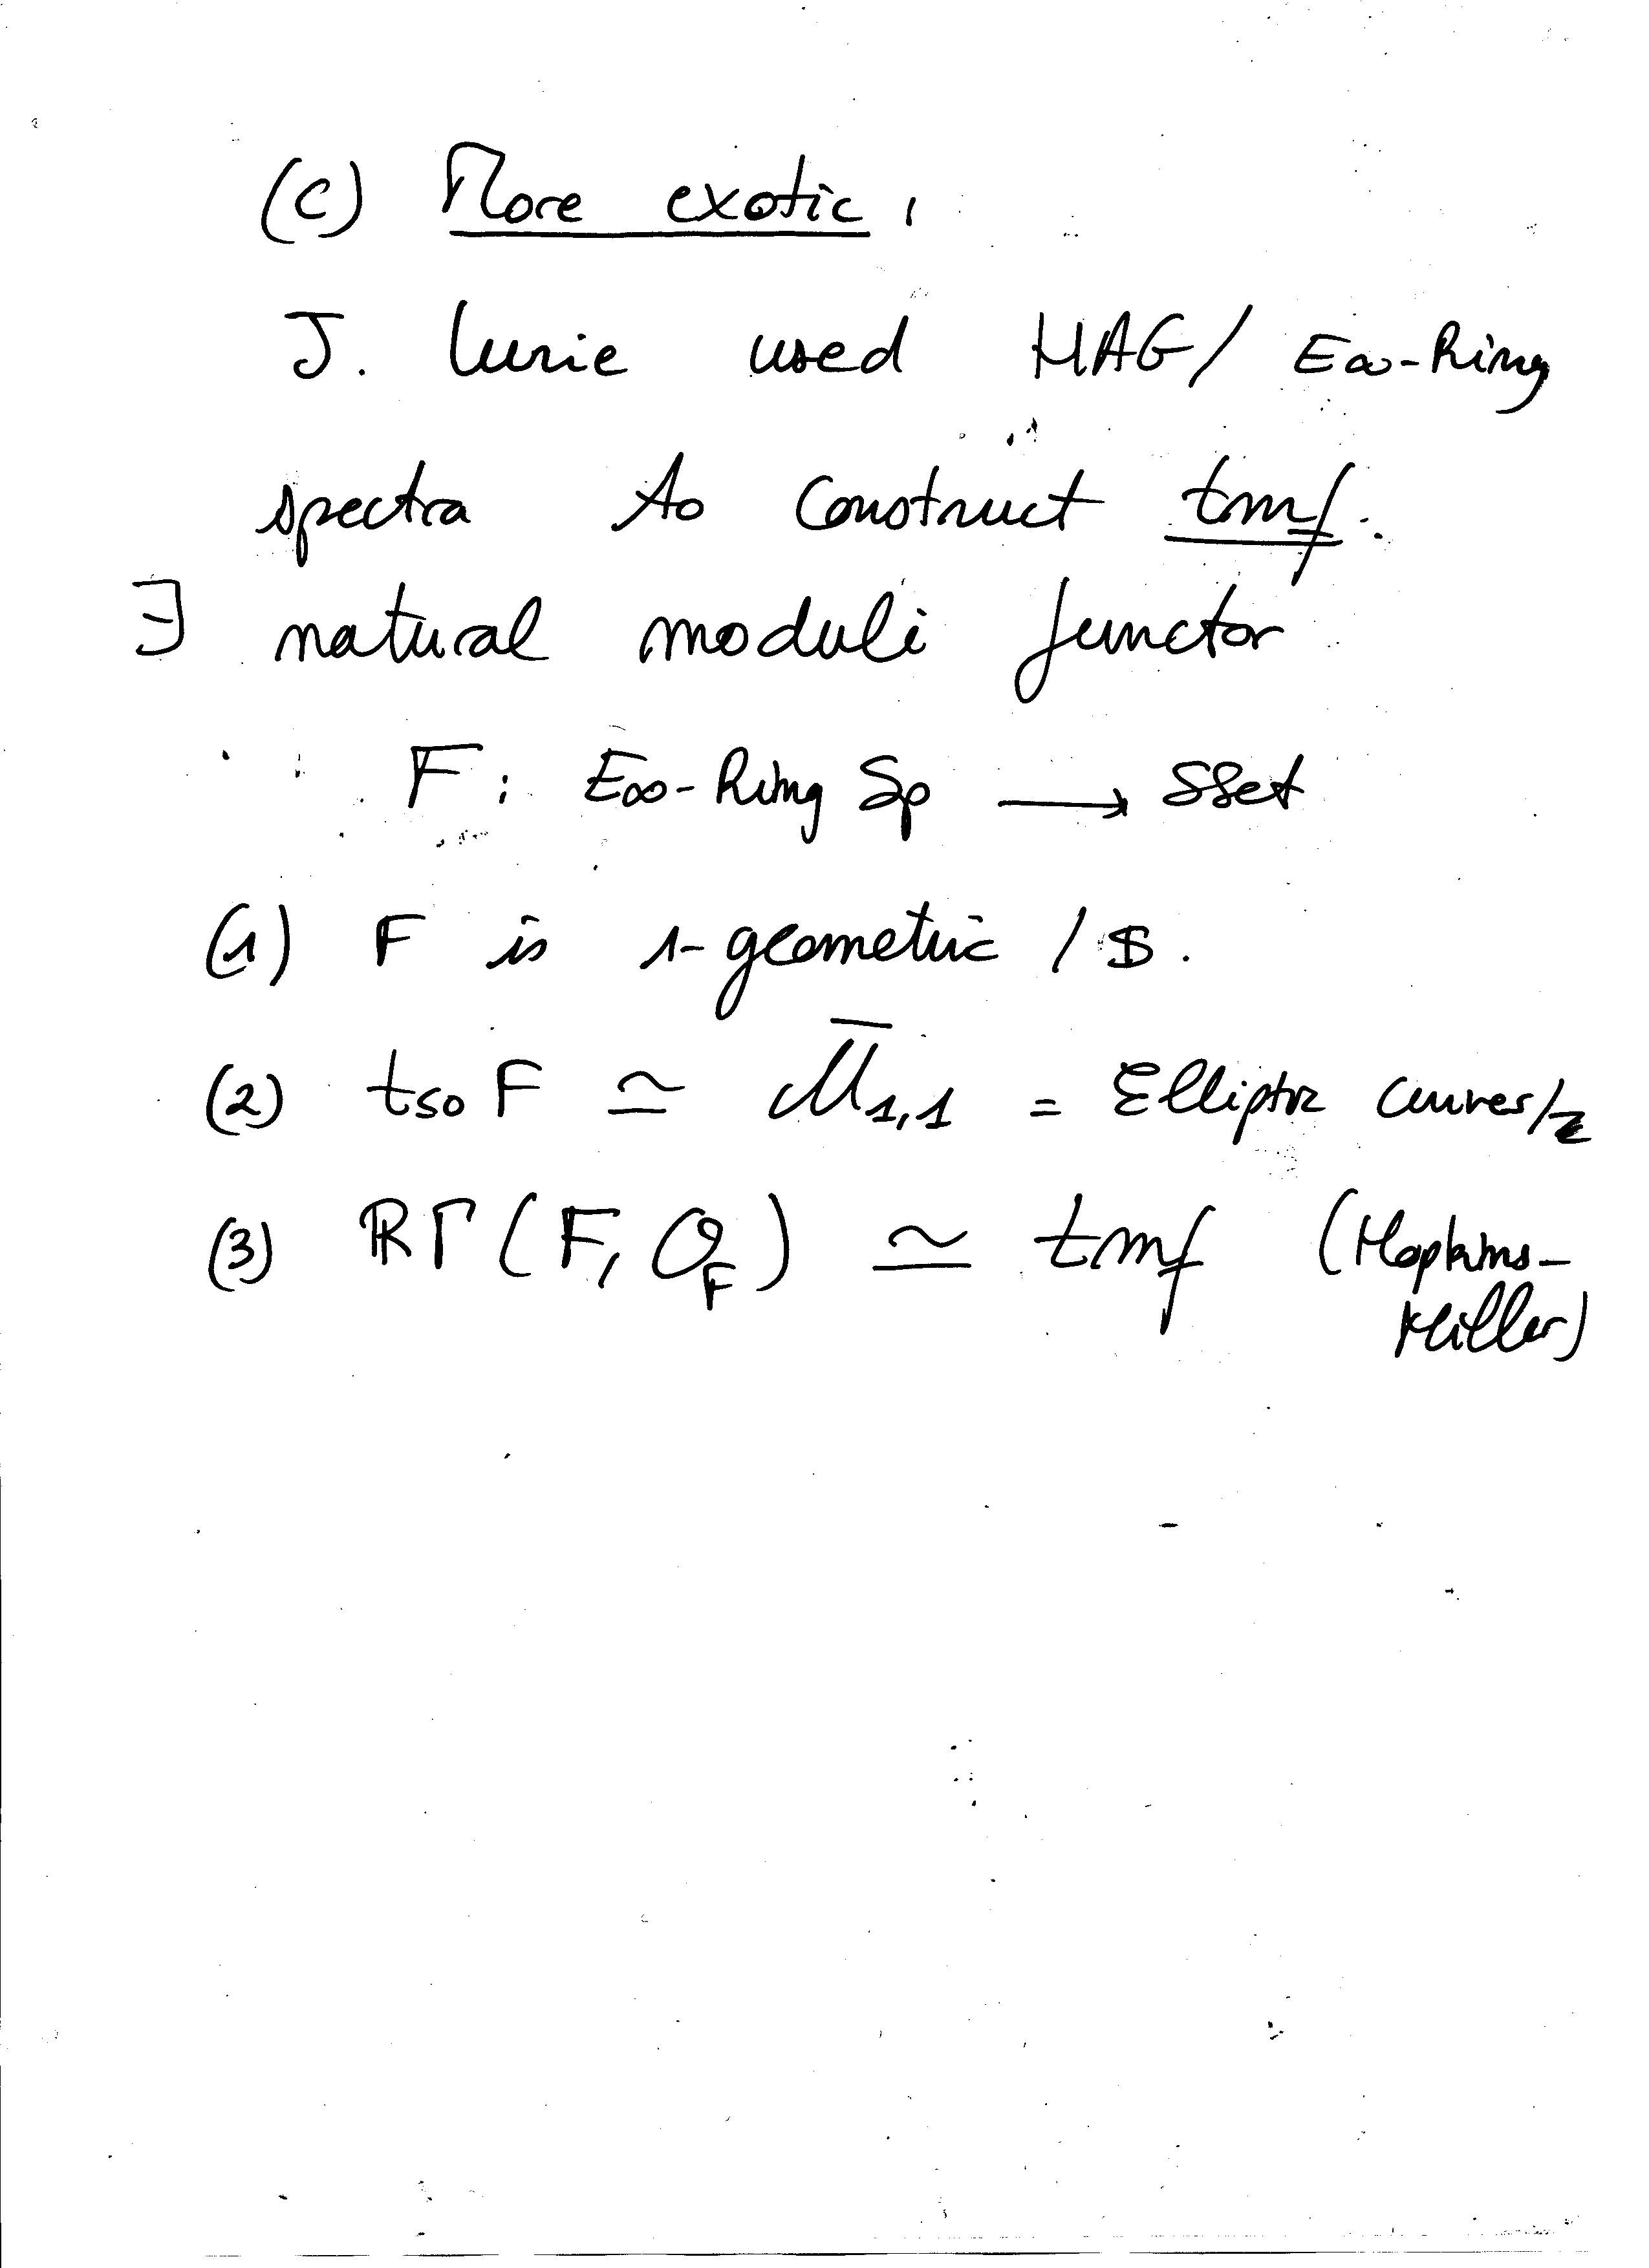 (c) More exotic,
J. Lurie used HAG/ E∞-Ring
spectra to construct tmf.
∃ natural moduli functor
F: E∞-Ring Sp ⟶ SSet
(1) F is 1-geometric / 𝕊.
(2) t≤0 F ≃ M̄1,1 = Elliptic curves/ℤ
(3) ℝΓ(F, O_F) ≃ tmf (Hopkins-
Miller)